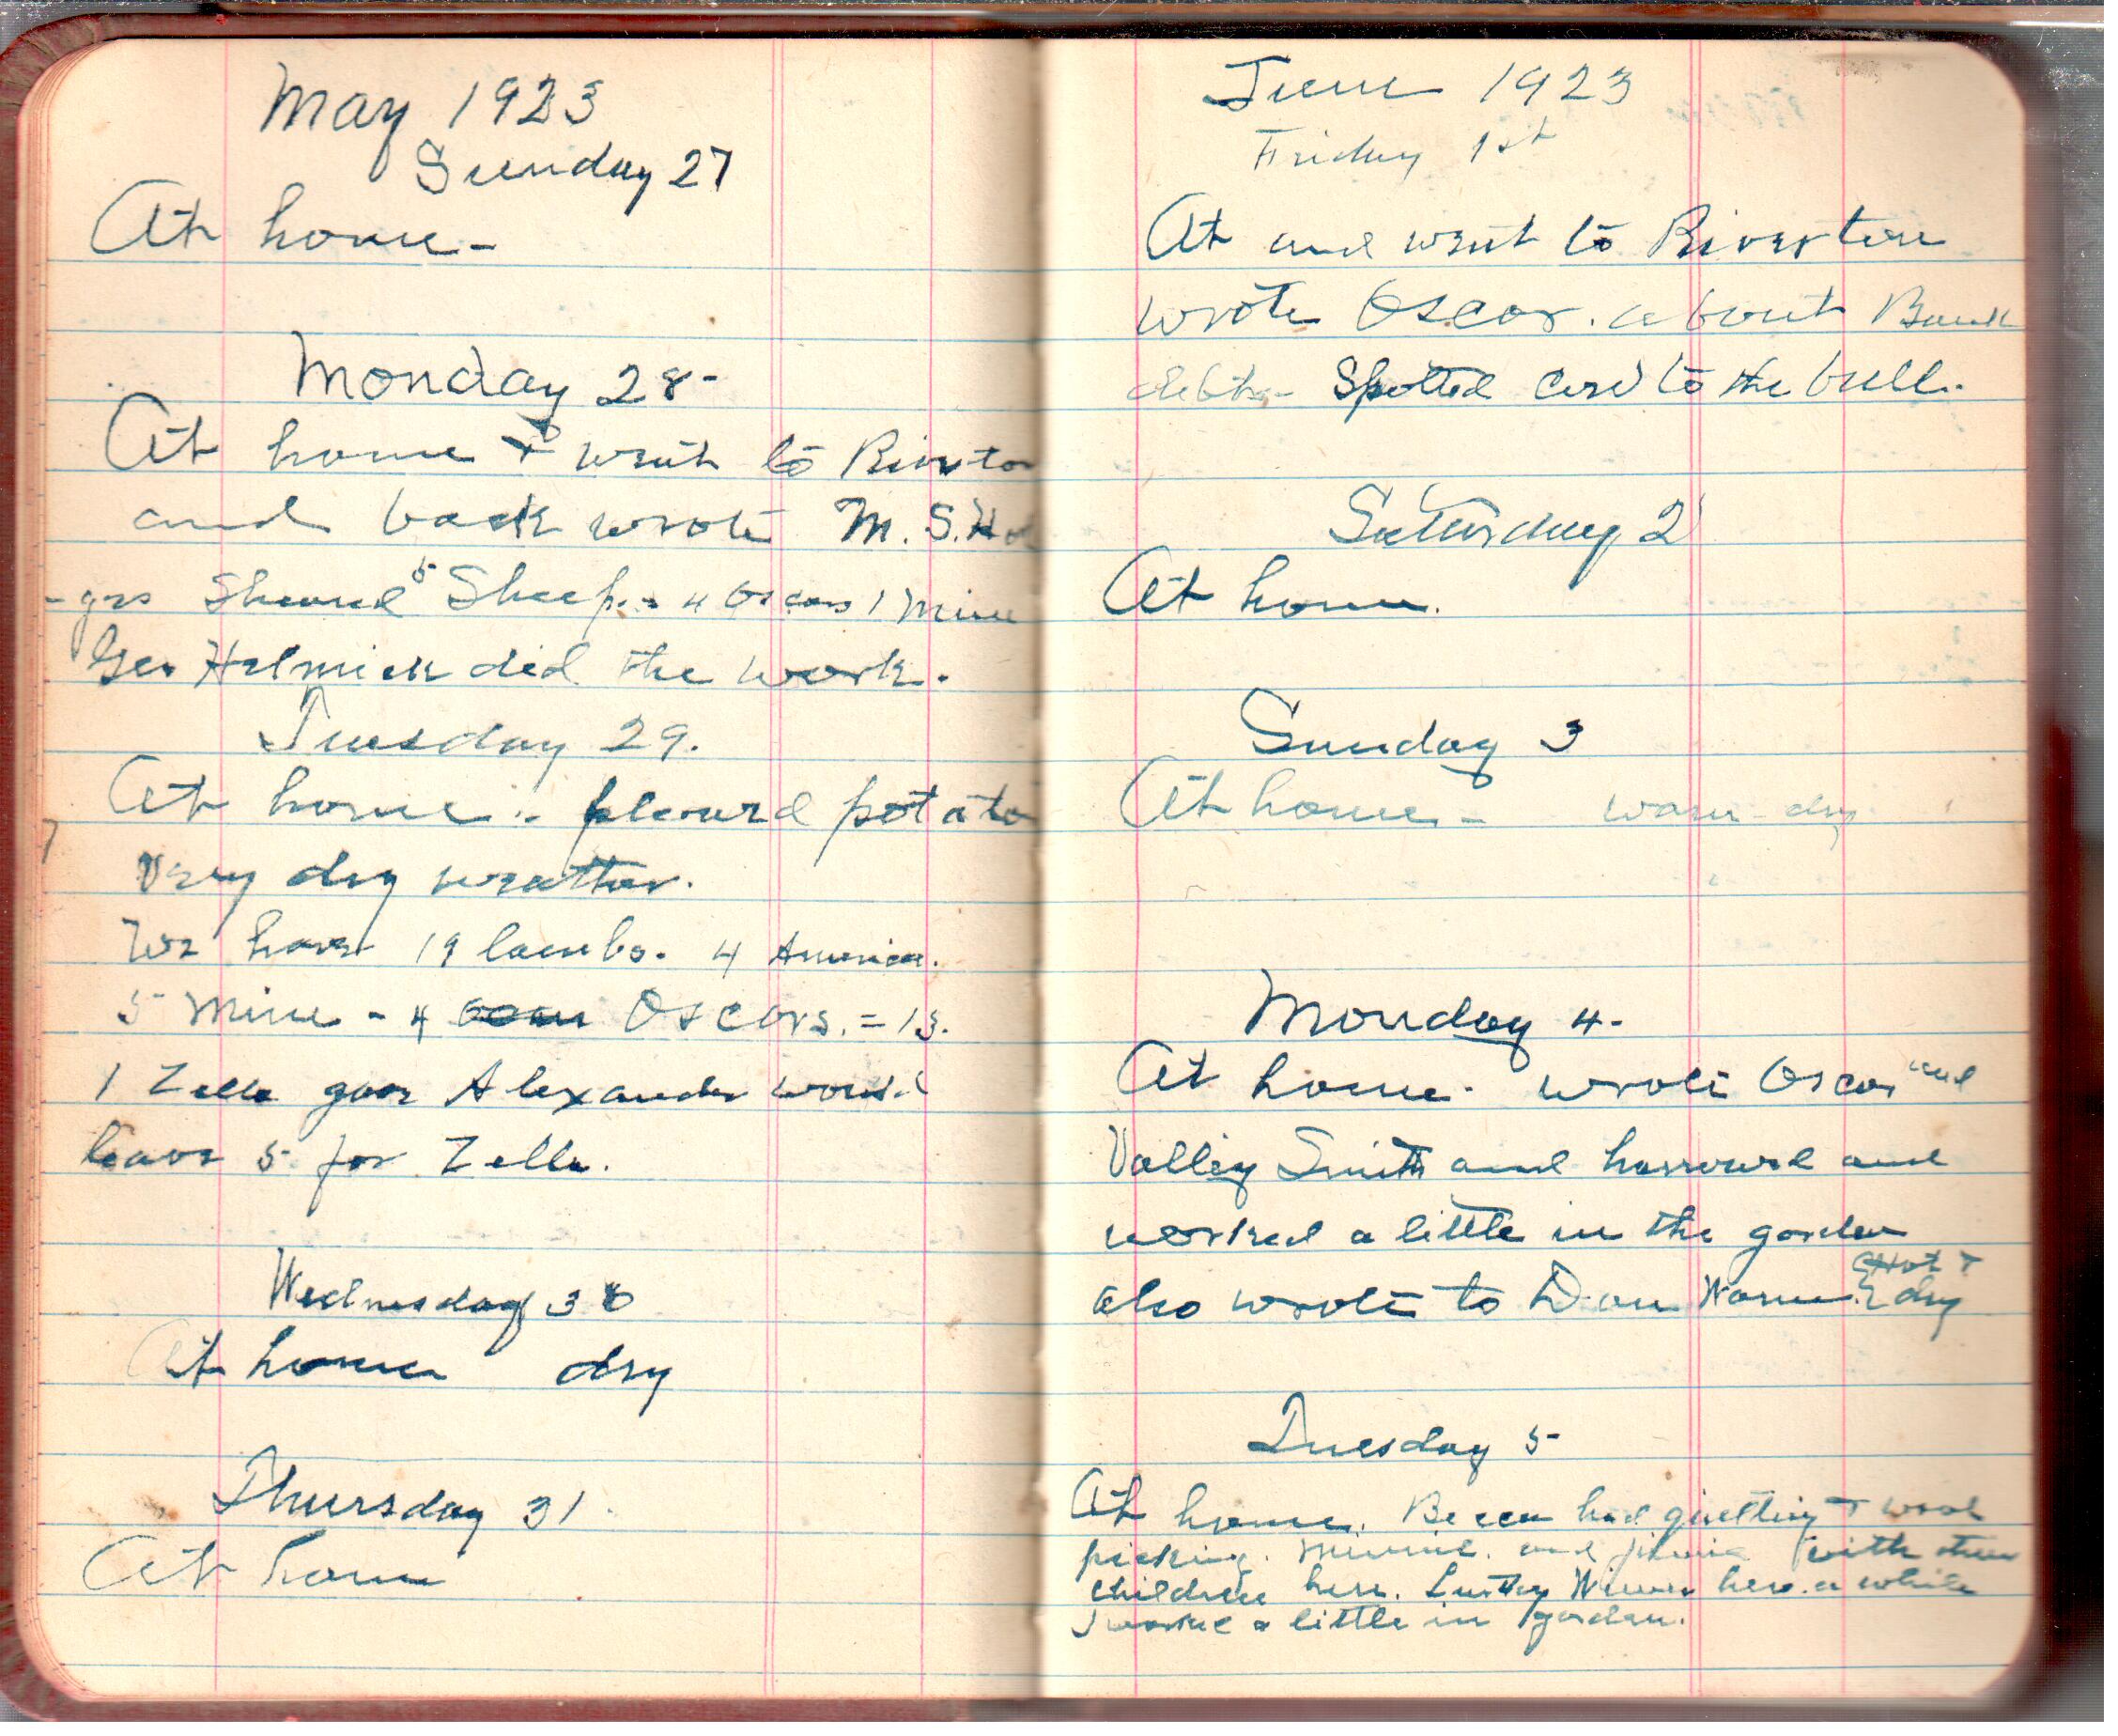 May 1923
Sunday 27
At home-
Monday 28-
At home & went to Riverto
and back wrote M. S. Ho
-grs Sheared 5 Sheep. 4 Oscars 1 Mine
Geo Helmick did the work.
Tuesday 29.
At home - plowed potato
very dry weather.
We have 19 lambs. 4 America.
5 Mine - 4 Oscars. = 13.
1 Zella goes Alexander would
leave 5 for Zella.
Wednesday 30
At home dry
Thursday 31
At home
June 1923
Friday 1st
At and went to Riverton
wrote Oscar. about Bank
debt- Spotted Cow to the bull.
Saturday 2
At home.
Sunday 3
At home - warm dry
Monday 4.
At home. wrote Oscar and
Valley Smith and harrowed and
worked a little in the garden
also wrote to Dan Warner. Hot &
dry
Tuesday 5
At home. Becca had quilting & wool
picking. Minnie. and with
children here. here a while
I worked a little in garden.